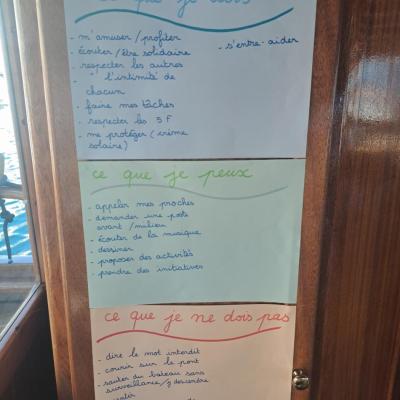 ce que je dois
- m'amuser / profiter
- écouter / être solidaire
- s'entre-aider
- respecter les autres
- " l'intimité de
chacun
- faire mes tâches
- respecter les 5 F
- me protéger (crème
solaire)
ce que je peux
- appeler mes proches
- demander une pote
avant / milieu
- écouter de la musique
- dessiner
- proposer des activités
- prendre des initiatives
ce que je ne dois pas
- dire le mot interdit
- courir sur le pont
- sauter du bateau sans
surveillance / y descendre